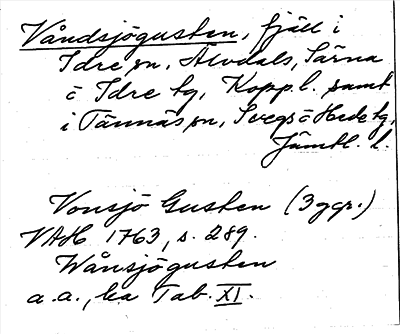 Våndsjögusten, fjäll i
Idre sn, Älvdals, Särna
o Idre tg, Kopp. l. samt
i Tännäs sn, Svegs o Hede tg,
Jämtl. l.
Vonsjö Gusten (3 ggr.)
VAH 1763, s. 289.
Wånsjögusten
a.a., Tab. XI.